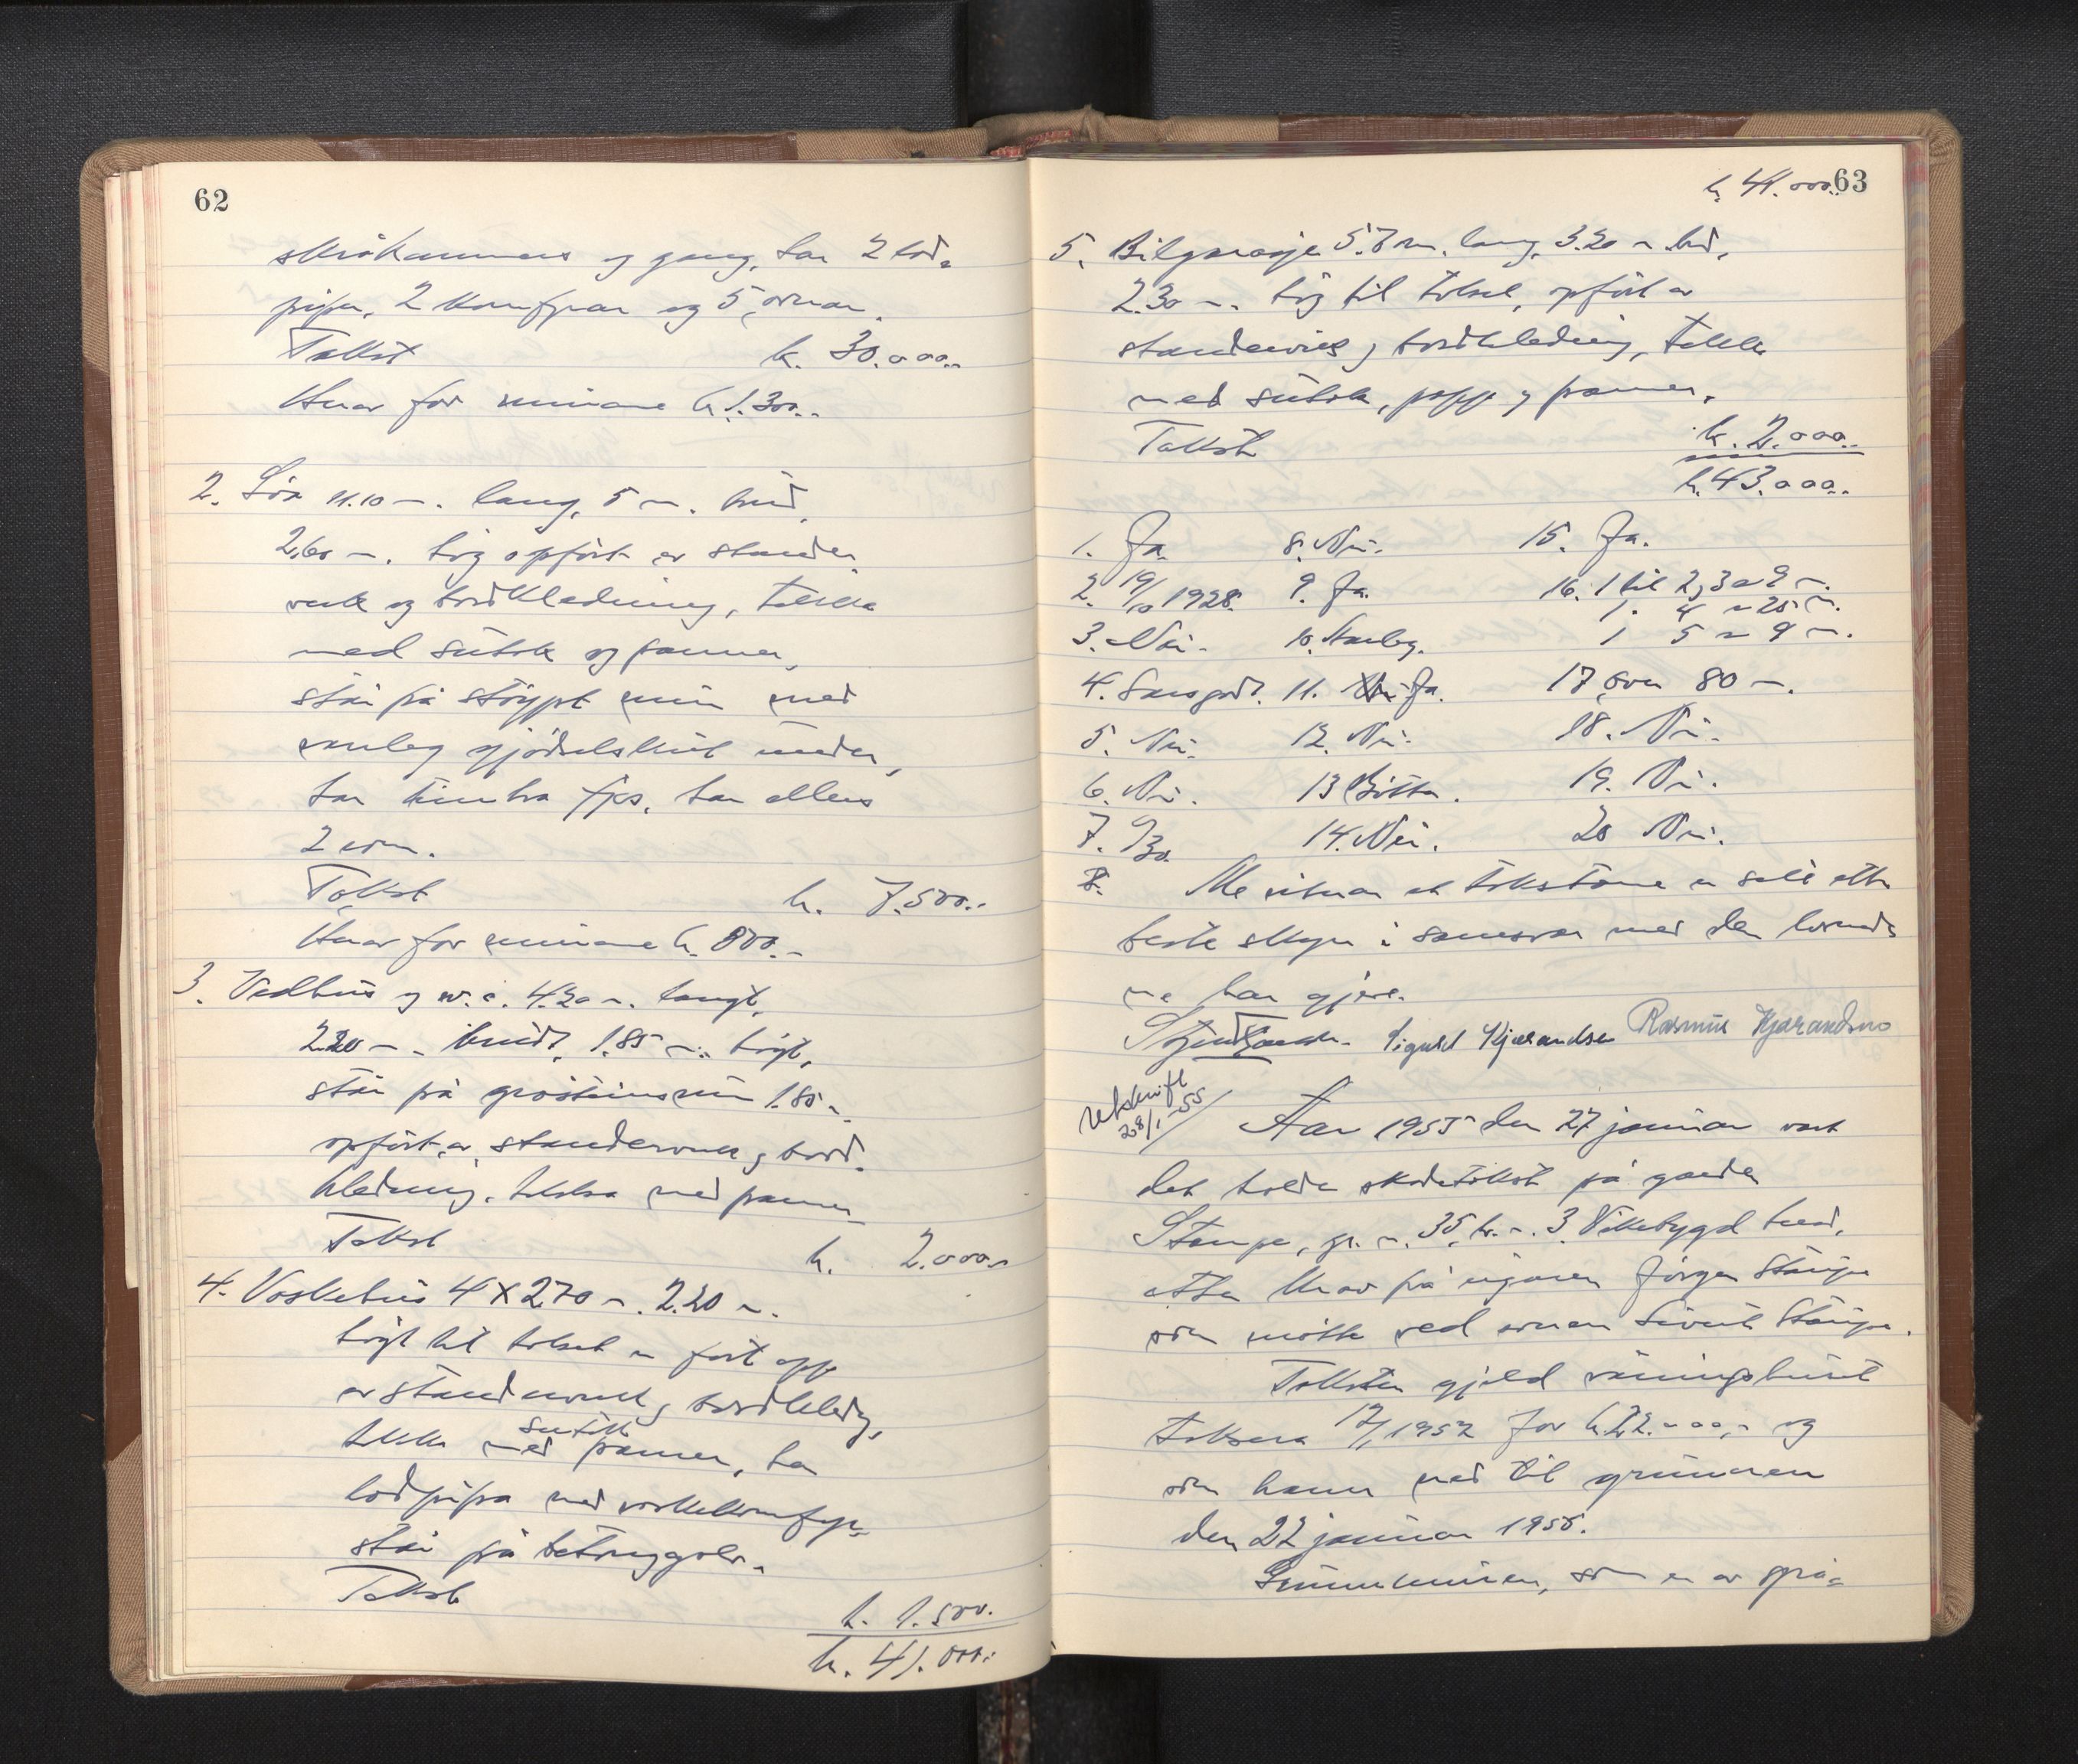 62
skråkammers og gang, har 2 lod-
pipa, 2 komfyrar og 5 omnar.
Takst k. 30.000.-
Herav for murane k 1.300.-
2. Löa 11.10 m. lang, 5 m. breid,
2.60 m. høg oppført av stander-
verk og bordkledning, tekka
med sutak og panner,
står på støypt mur med
vanleg gjødselskut under,
har fjos, har ellers
2 rom.
Takst k. 7.500.-
Herav for murane k. 800.-
3. Vedhus og w.c. 4.20 m. langt,
2.20 m. breidt, 1.85 m. høgt,
står på gråsteinsmur 1.80 m.
oppført av standerverk og bord-
kledning, tekka med panner
Takst k. 2.000.-
4. Vaskehus 4 X 2.70 m. 2.20 m.
høgt til toket er ført opp
av standerverk og bordkledg,
tekka med sutak panner, har
lodpipa med vaskekomfyr
står på betonggolv.
Takst
k. 1.500.-
k. 41.000.-
k. 41.000.- 63
5. Bilgarasje 5.7 m. lang, 3.20 m. bred,
2.30 m. høg til toket, oppført av
standerverk og bordkledning, tekka
med sutak, papp og panner.
Takst k. 2.000.-
k. 43.000.-
1. Ja. 8. Nei. 15. Ja.
2. 19/10 1928. 9. Ja. 16. 1 til 2, 3 a 9 m.
1. 4 a 25 m.
3. Nei. 10. Vanleg. 1 5 a 9 m.
4. Særs godt. 11. Ja. 17. over 80 m.
5. Nei. 12. Nei. 18. Nei.
6. Nei. 13 Bøtta. 19. Nei.
7. 14. Nei. 20 Nei.
8. Me vitnar at takstane er sett etter
beste skyn i samsvar med den lovnad
me har gjeve.
Sigurd Kjærandsen Rasmus Kjærandsen
Utskrift
28/1-55
Aar 1955 den 27 januar vart
det halde skadetakst på garden
Stampe, gr. n. 35, br. n. 3, Vikebygd herad,
etter krav frå eigaren Jørgen Stampe
som møtte ved sonen Sivert Stampe.
Taksten gjeld våningshuset
taksera 17/1 1952 for k. 22.000,- og
som brann ned til grunnen
den 22 januar 1955.
Grunnmuren, som er av grå-